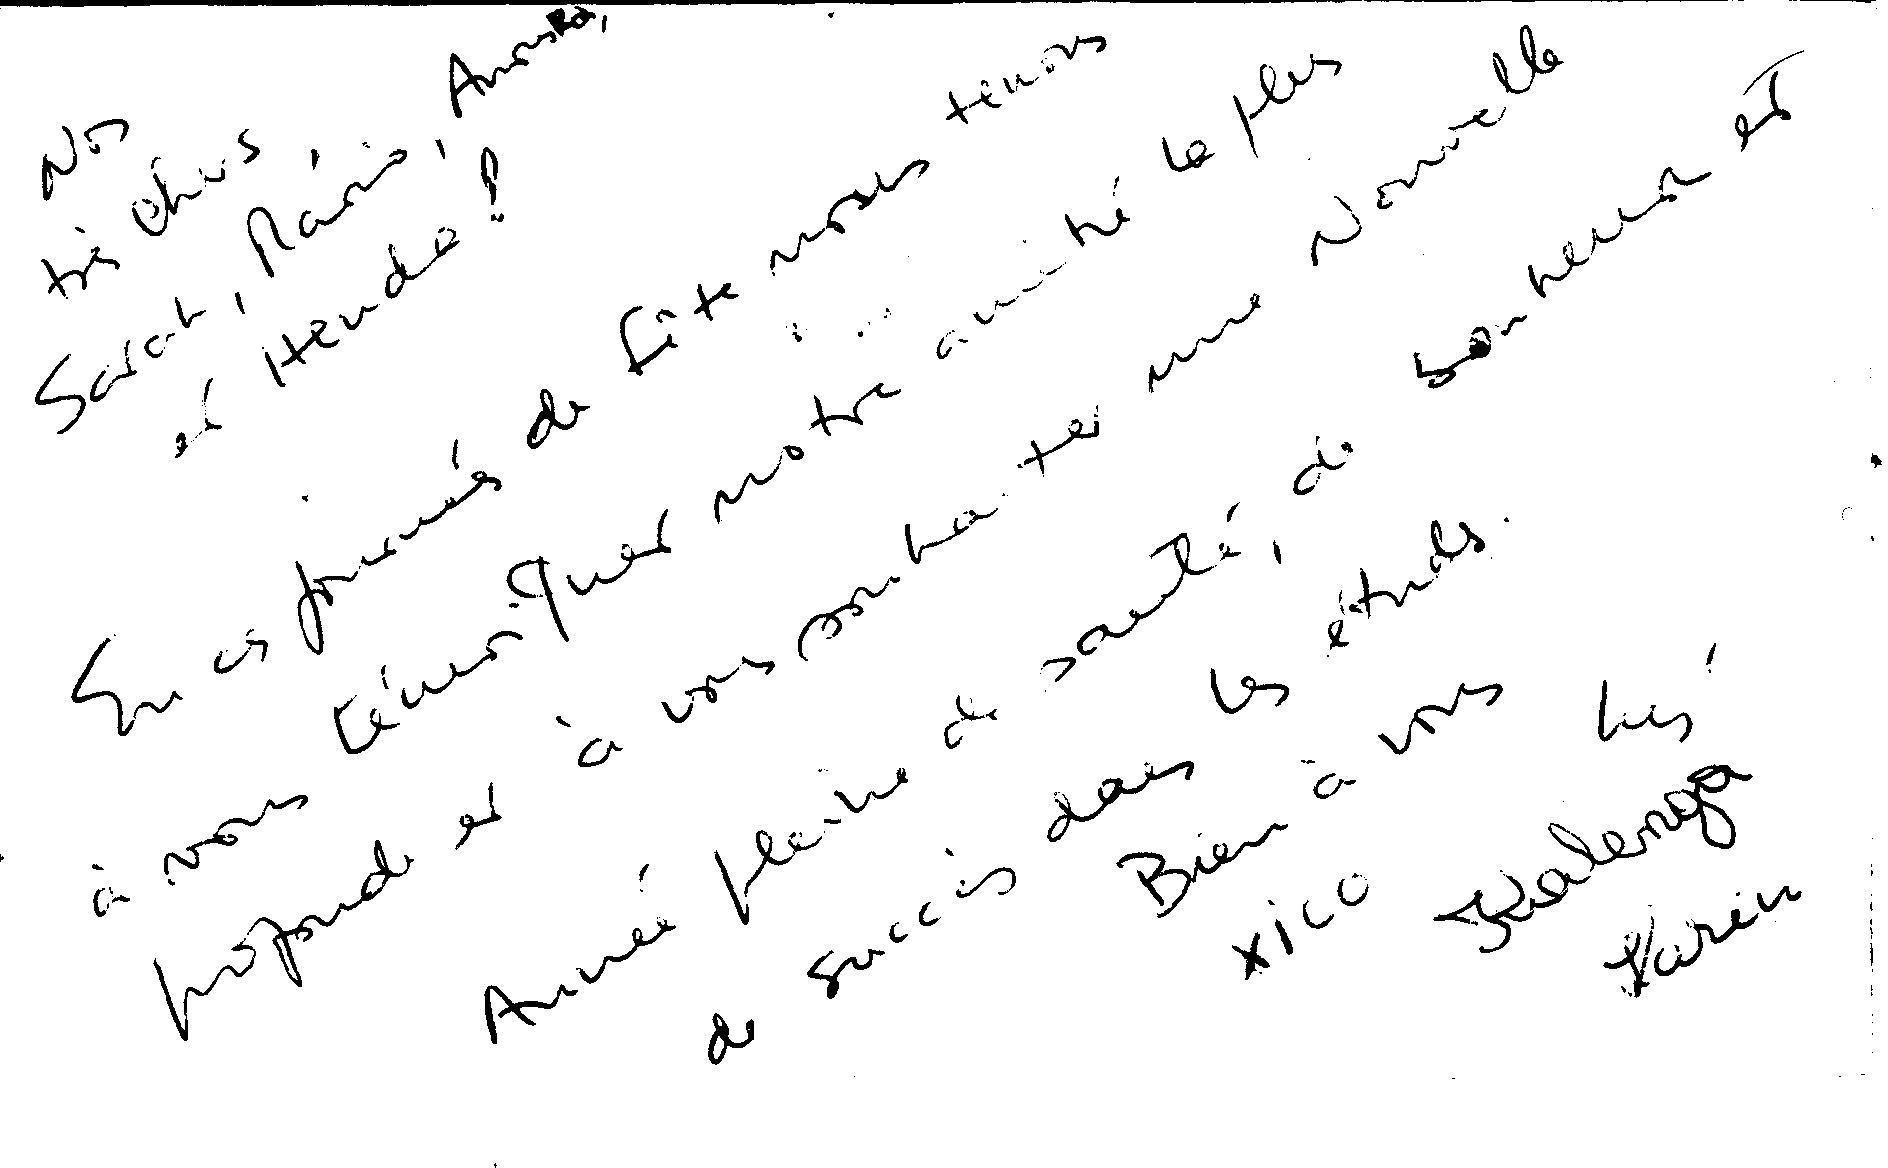 Nos très chers
Sarah, Mário, Anouska,
et Hendo!
En ces journées de fête nous tenons
à vous témoigner notre amitié la plus
profonde et à vous souhaiter une Nouvelle
Année pleine de santé, de bonheur et
de succès dans les études.
Bien à vous
XICO Kalenga
Karin